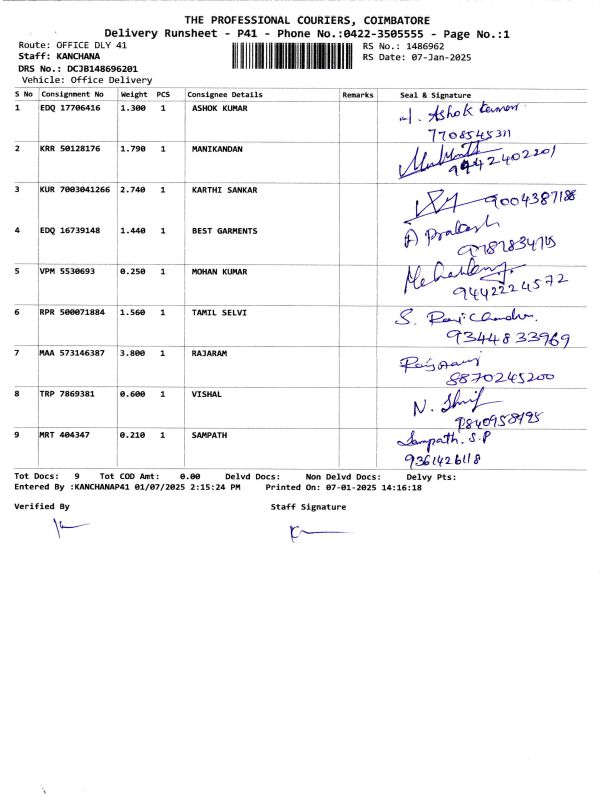 THE PROFESSIONAL COURIERS, COIMBATORE
Delivery Runsheet - P41 - Phone No.:0422-3505555 - Page No.:1
Route: OFFICE DLY 41 RS No.: 1486962
Staff: KANCHANA RS Date: 07-Jan-2025
DRS No.: DCJB148696201
Vehicle: Office Delivery
S No Consignment No Weight PCS Consignee Details Remarks Seal & Signature
1 EDQ 17706416 1.300 1 ASHOK KUMAR Ashok Kumar
7708545311
2 KRR 50128176 1.790 1 MANIKANDAN
9442402201
3 KUR 7003041266 2.740 1 KARTHI SANKAR 9004387188
4 EDQ 16739148 1.440 1 BEST GARMENTS Prakash
5 VPM 5530693 0.250 1 MOHAN KUMAR
9442224572
6 RPR 500071884 1.560 1 TAMIL SELVI S. Ravichandran.
9344833969
7 MAA 573146387 3.800 1 RAJARAM
8870245200
8 TRP 7869381 0.600 1 VISHAL N.
9 MRT 404347 0.210 1 SAMPATH Sampath. S.P
9361426118
Tot Docs: 9 Tot COD Amt: 0.00 Delvd Docs: Non Delvd Docs: Delvy Pts:
Entered By :KANCHANAP41 01/07/2025 2:15:24 PM Printed On: 07-01-2025 14:16:18
Verified By Staff Signature